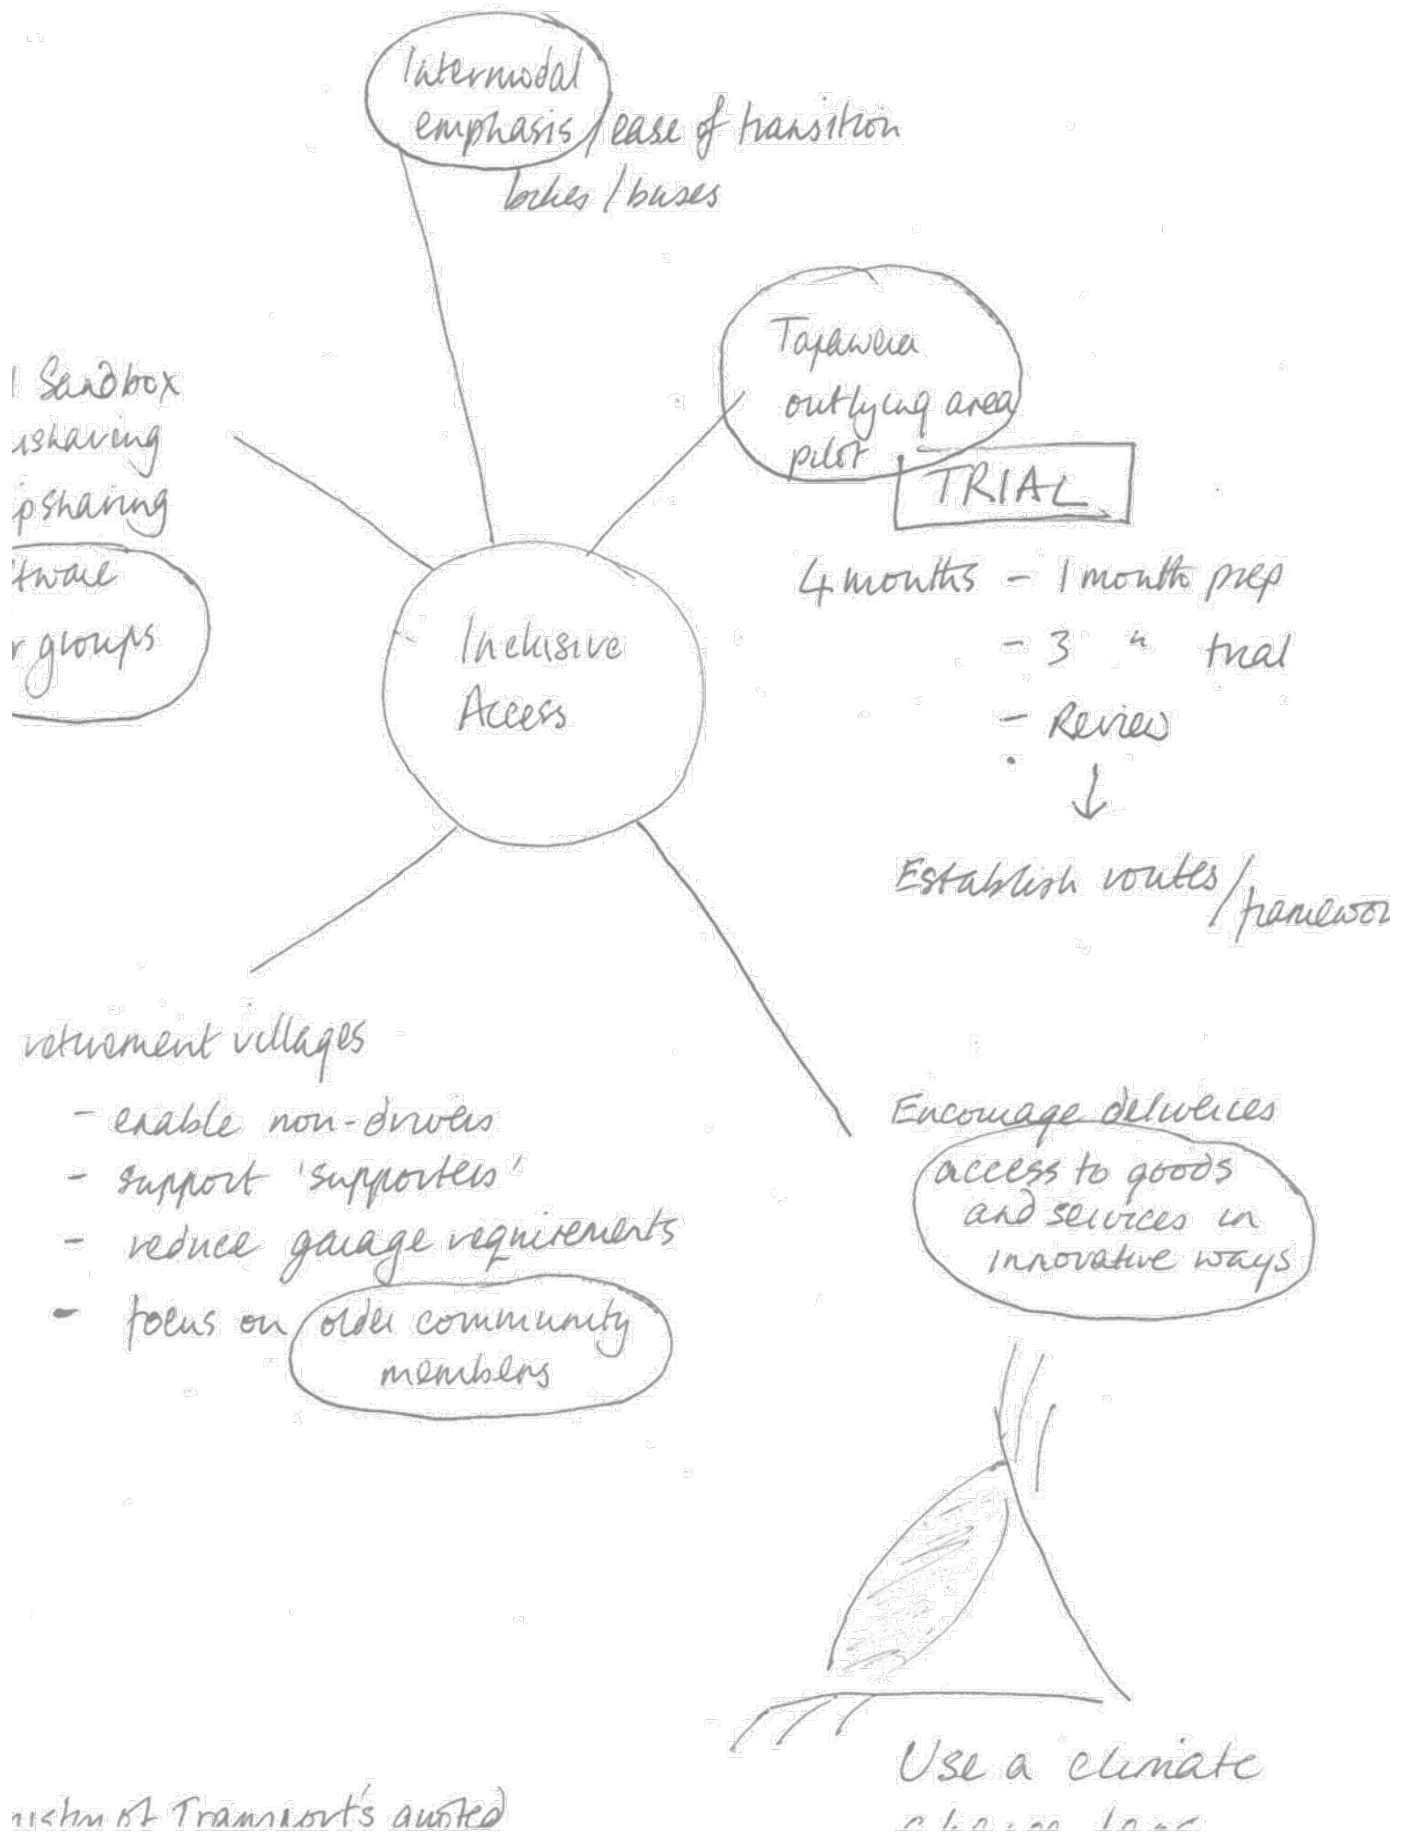 Intermodal
emphasis / ease of transition
bikes / buses
Tapawera
outlying area
pilot
TRIAL
4 months - 1 month prep
- 3 " trial
- Review
↓
Establish routes / framewor
Sandbox
sharing
psharing
tware
r groups
Inclusive
Access
retirement villages
- enable non-drivers
- support 'supporters'
- reduce garage requirements
- focus on older community
members
Encourage deliveries
access to goods
and services in
innovative ways
Use a climate
of Transport's quoted